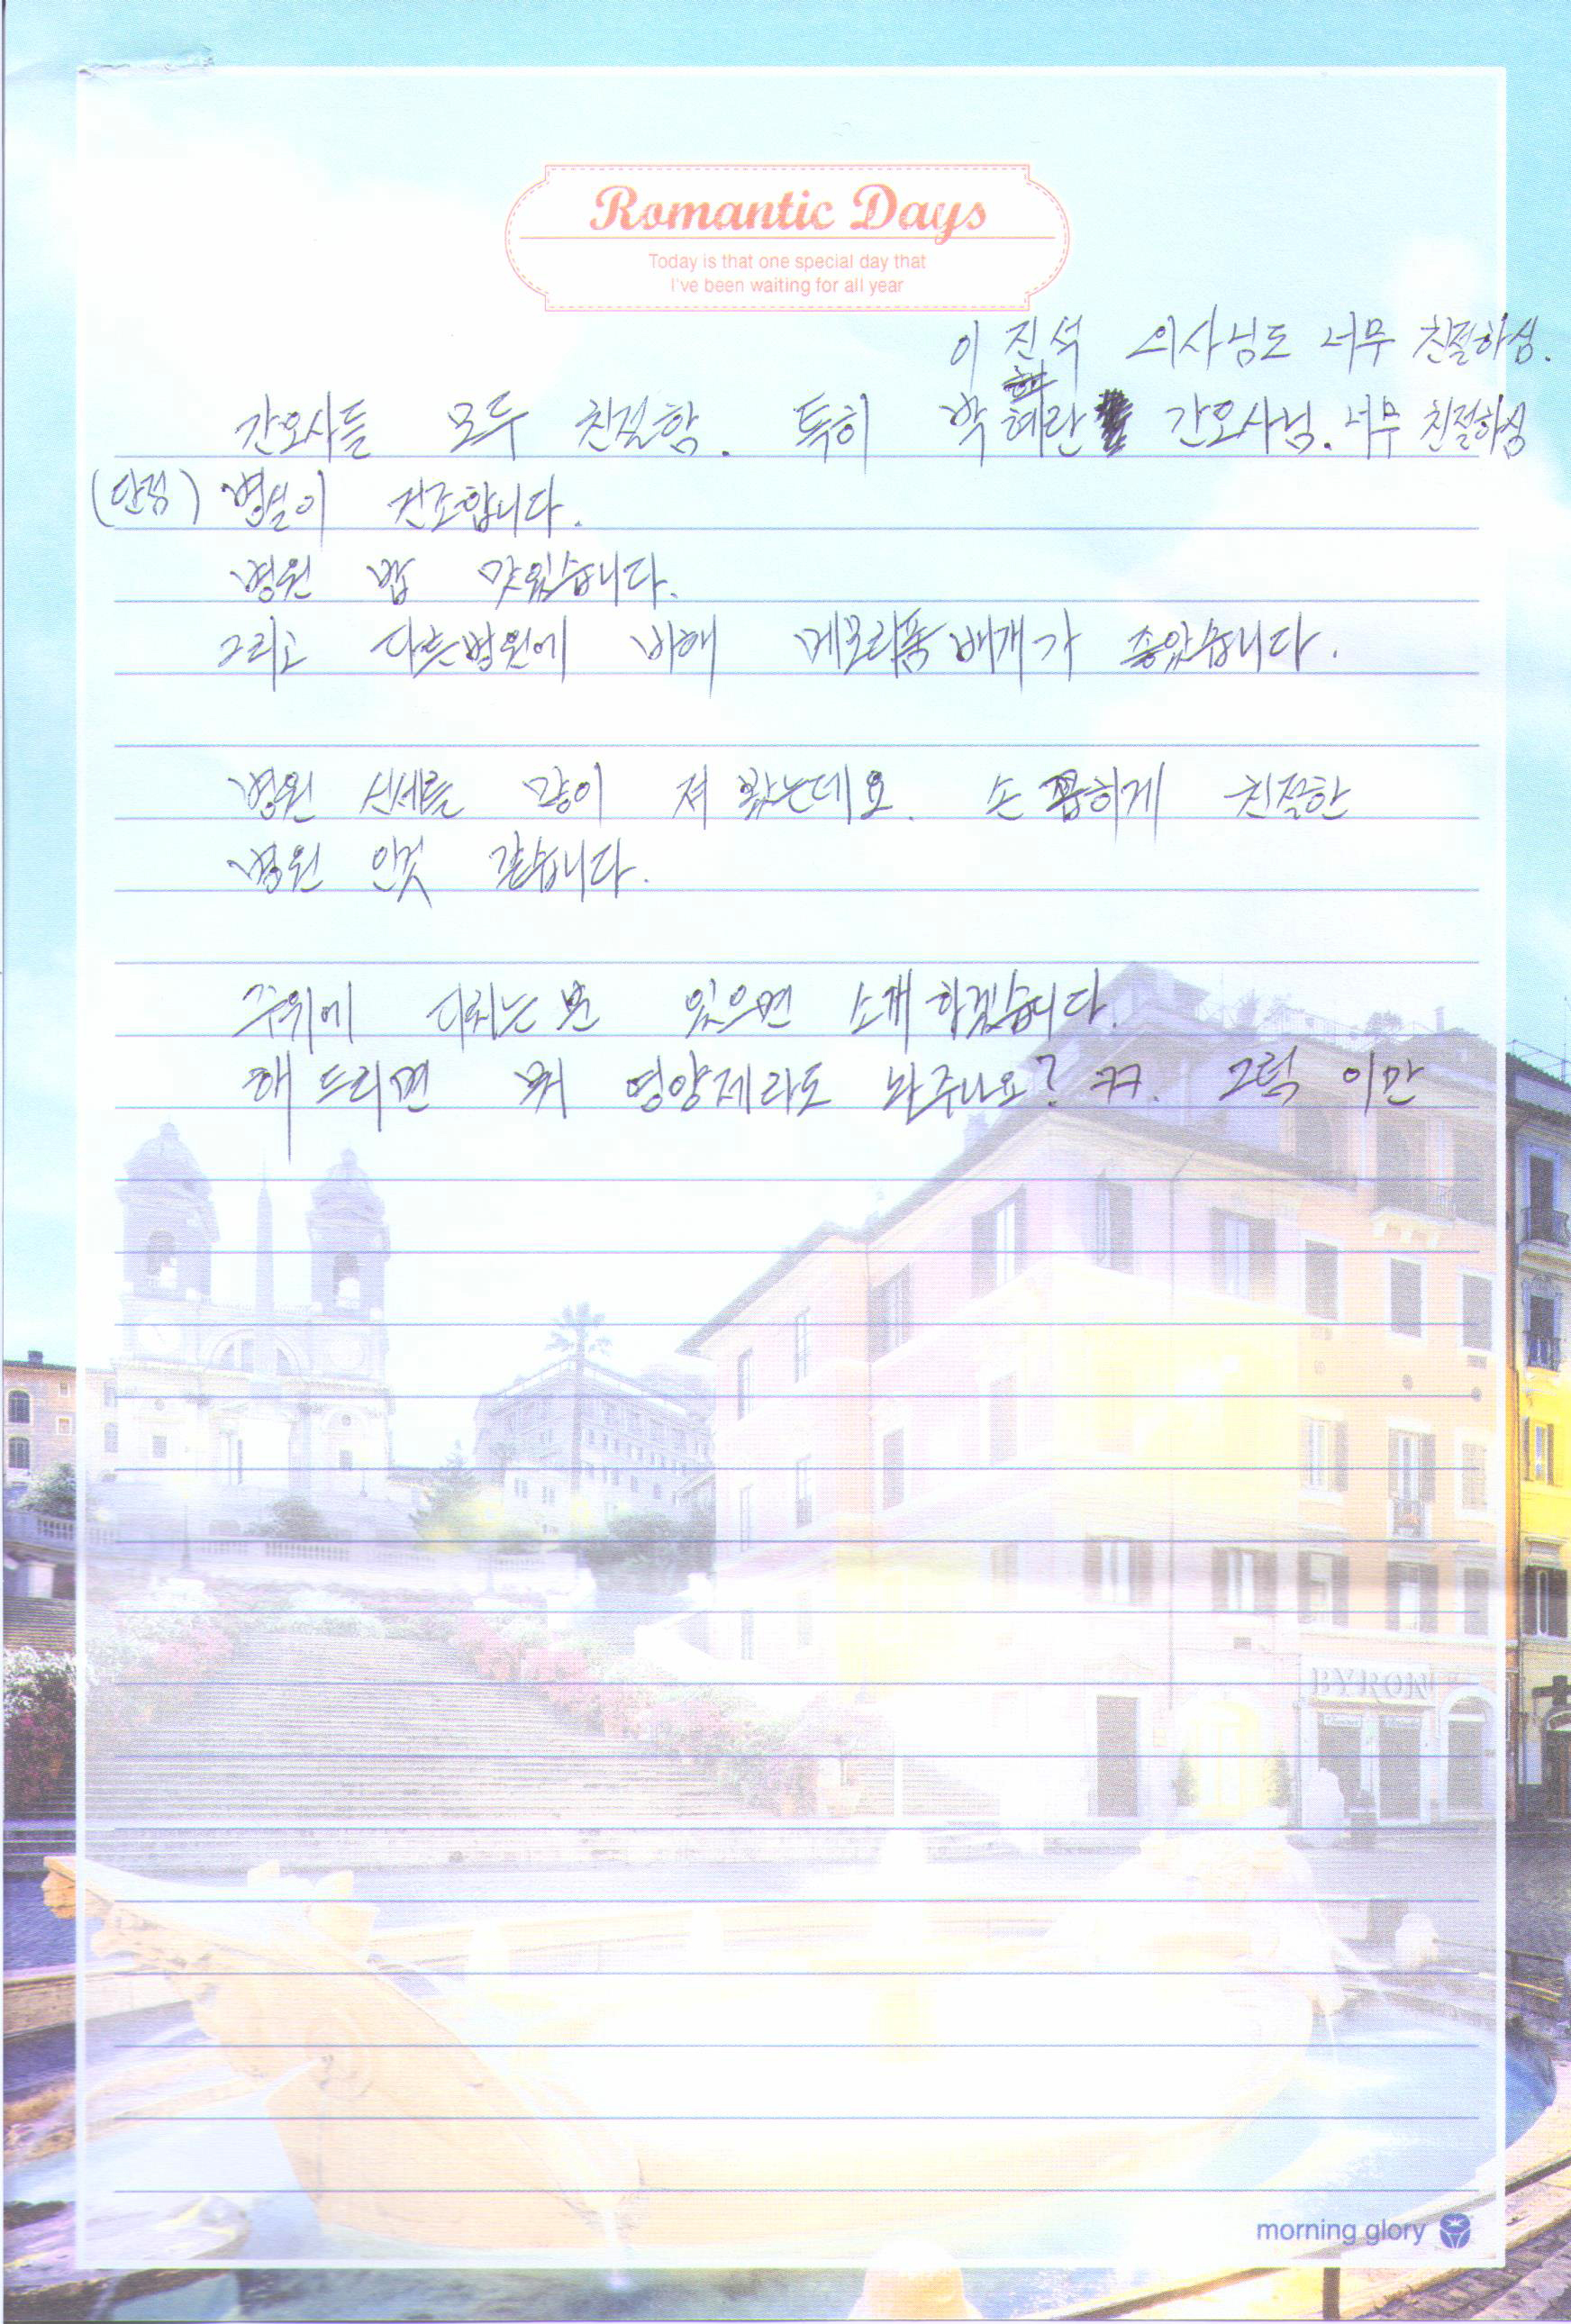 Romantic Days
Today is that one special day that
I've been waiting for all year
이진석 의사님도 너무 친절하심.
간호사들 모두 친절함. 특히 박혜란 간호사님. 너무 친절하심
(단점) 병실이 건조합니다.
병원 밥 맛있습니다.
그리고 다른병원에 비해 메모리폼 배개가 좋았습니다.
병원 신세를 많이 져 봤는데요. 손 꼽히게 친절한
병원 인것 같습니다.
주위에 다치는 분 있으면 소개 하겠습니다.
해 드리면 뭐 영양제라도 놔주나요? ㅋㅋ. 그럼 이만
morning glory